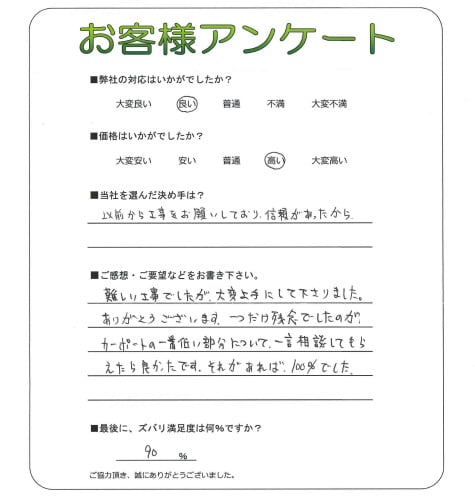 お客様アンケート
■弊社の対応はいかがでしたか？
大変良い 良い 普通 不満 大変不満
■価格はいかがでしたか？
大変安い 安い 普通 高い 大変高い
■当社を選んだ決め手は？
以前から工事をお願いしており、信頼があったから
■ご感想・ご要望などをお書き下さい。
難しい工事でしたが、大変上手にして下さりました。
ありがとうございます。一つだけ残念でしたのが、
カーポートの一番低い部分について、一言相談してもら
えたら良かったです。それがあれば、100%でした。
■最後に、ズバリ満足度は何％ですか？
90 ％
ご協力頂き、誠にありがとうございました。